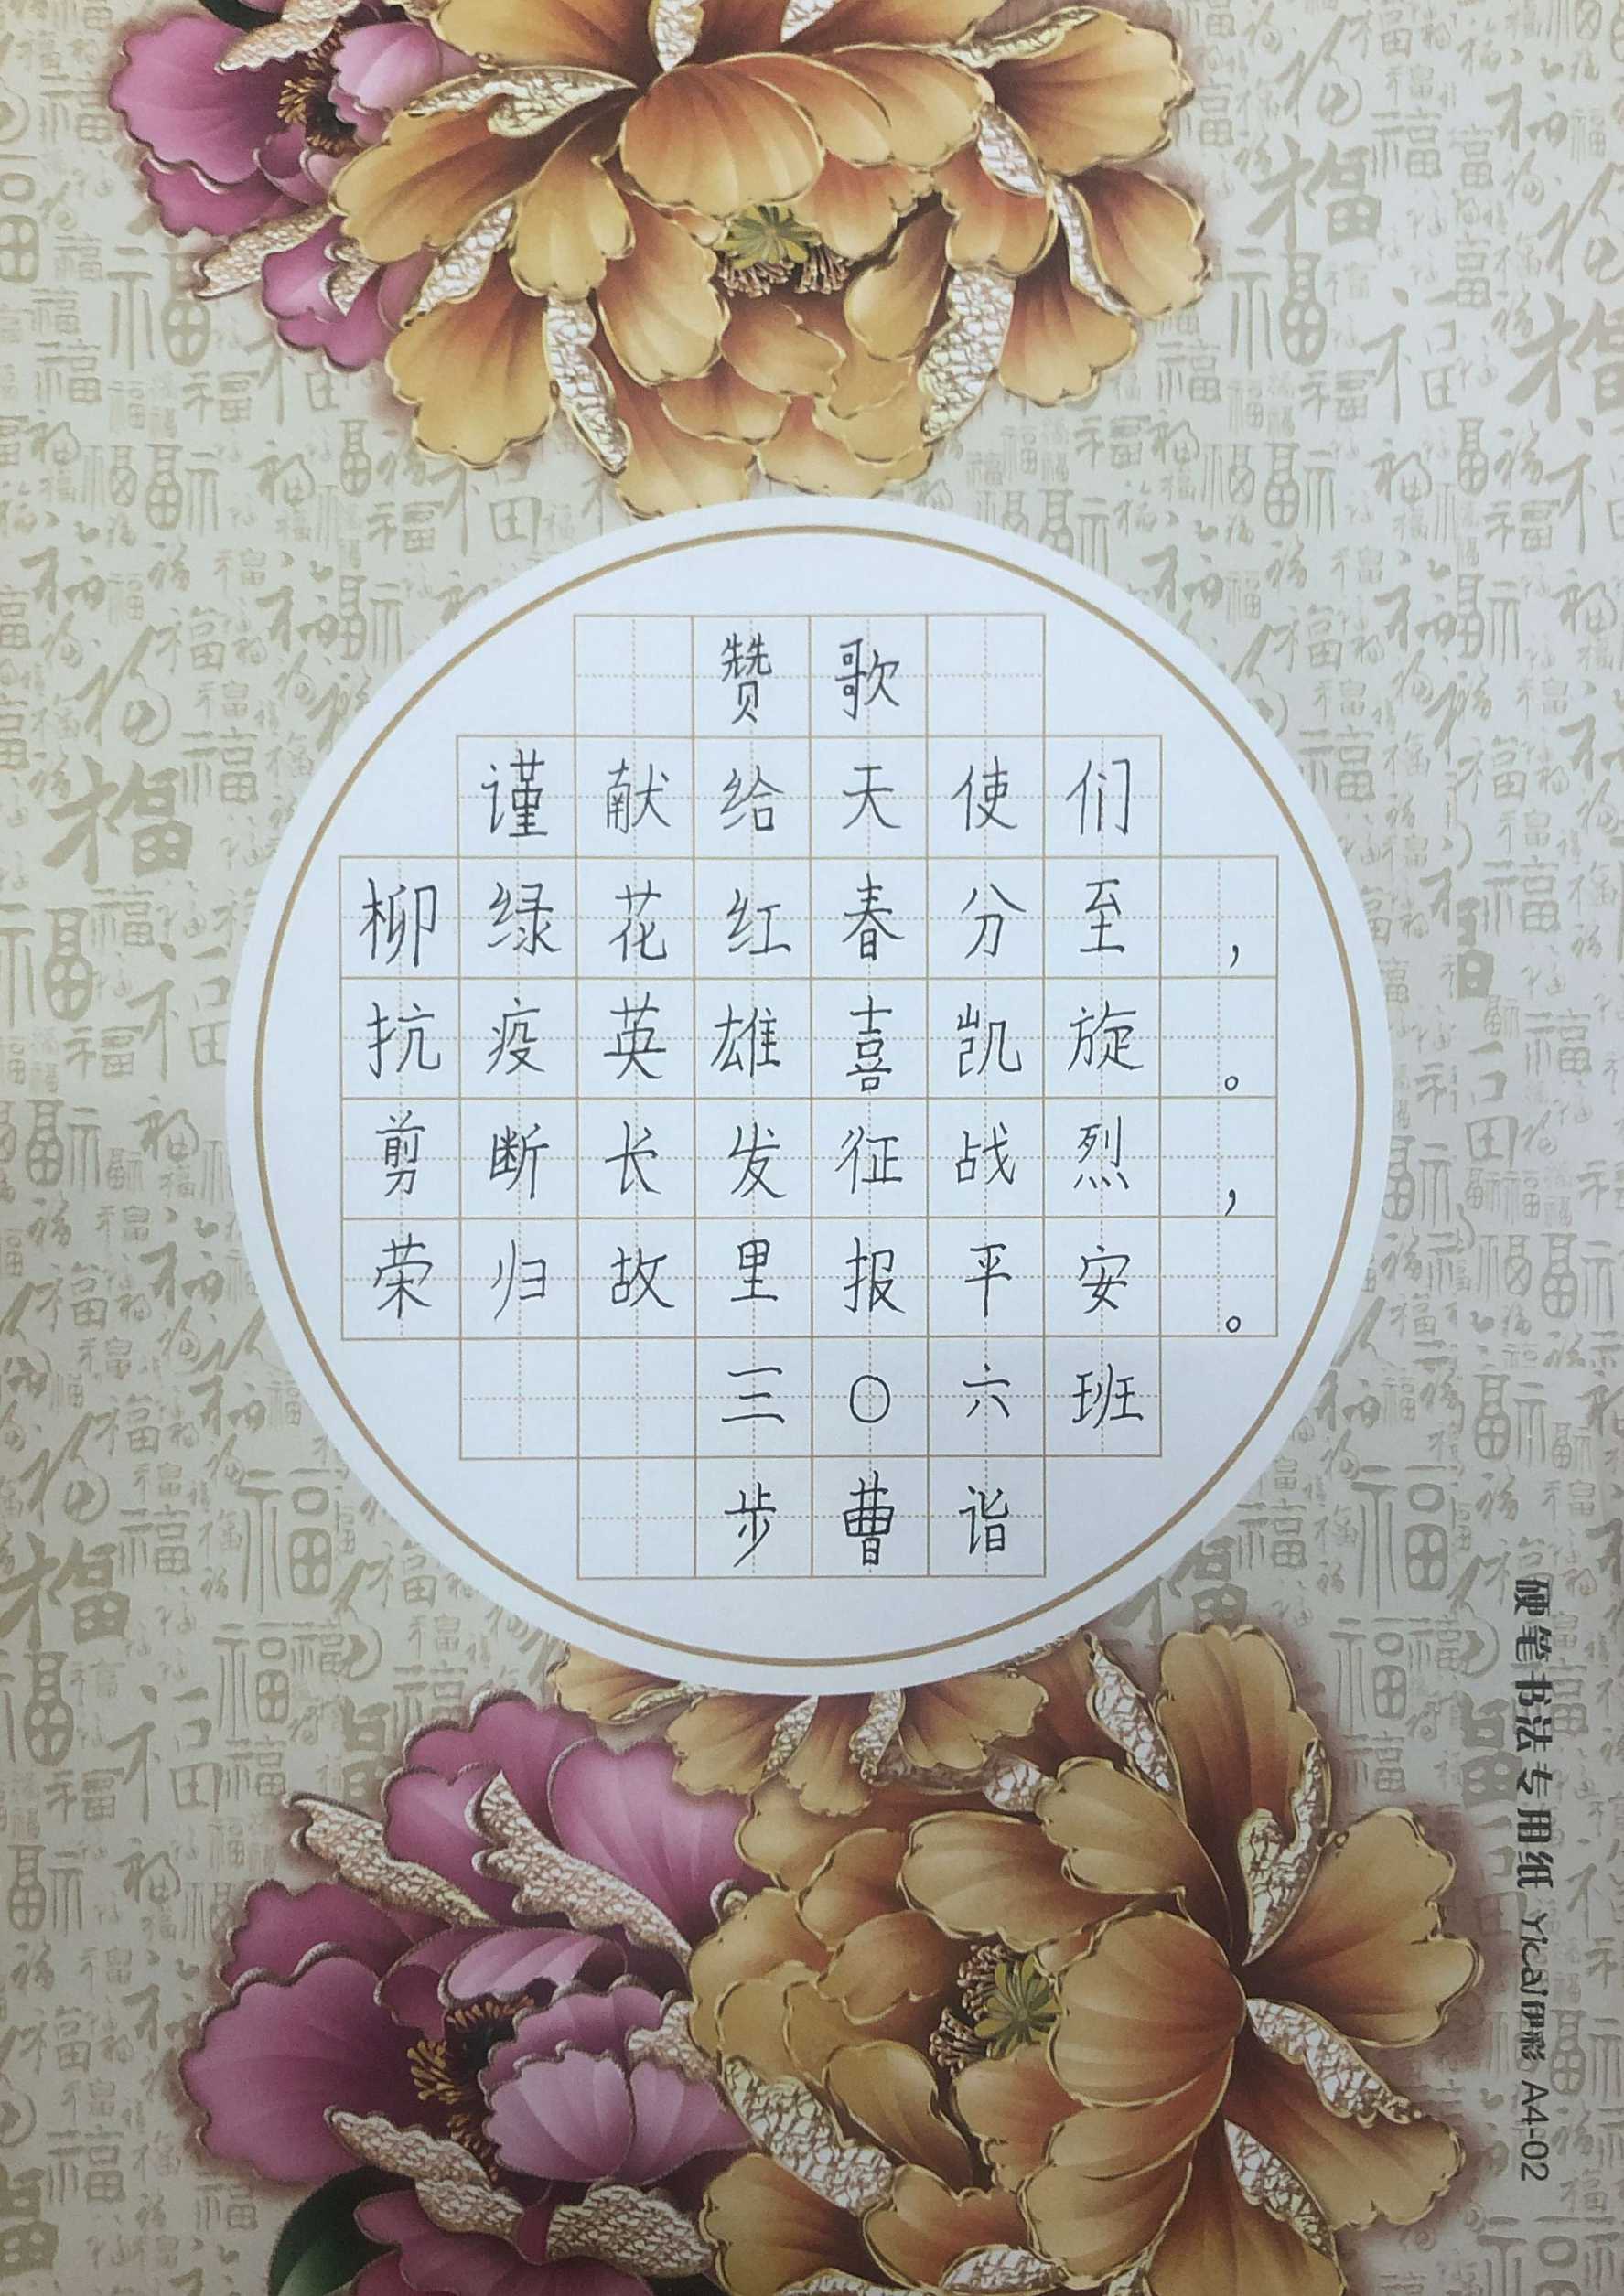 赞歌
谨献给天使们
柳绿花红春分至，
抗疫英雄喜凯旋。
剪断长发征战烈，
荣归故里报平安。
三〇六班
步曹诣
硬笔书法专用纸 Yicai伊彩 A4-02